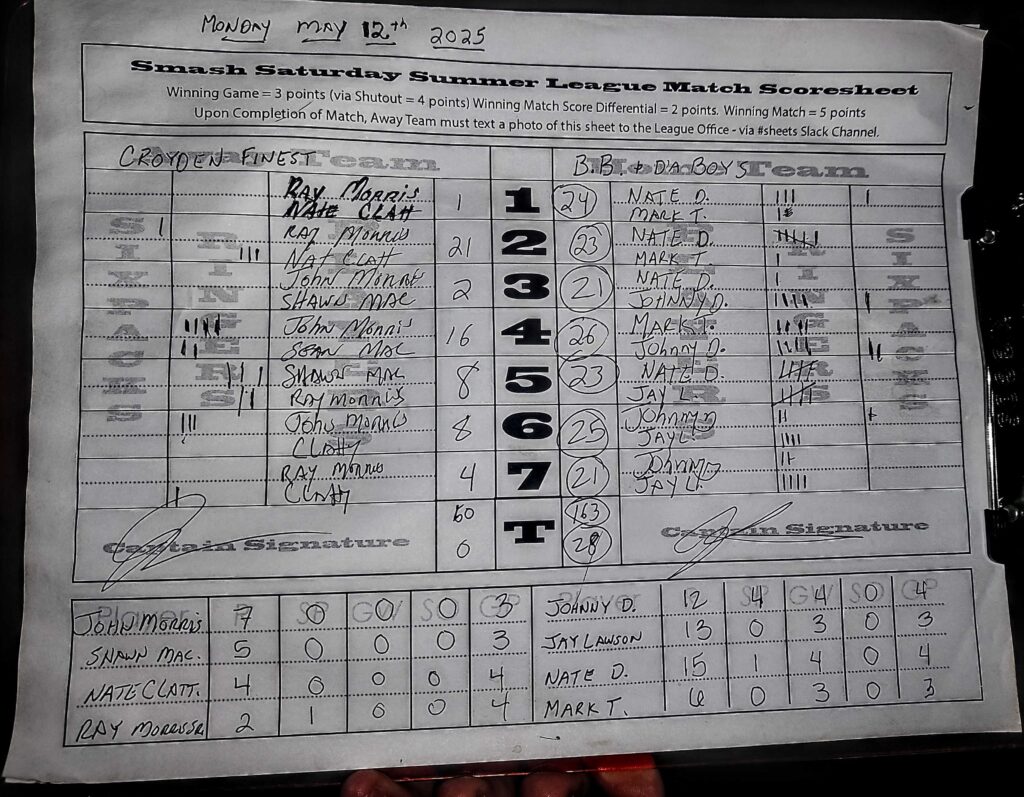 MONDAY MAY 12th 2025
Smash Saturday Summer League Match Scoresheet
Winning Game = 3 points (via Shutout = 4 points) Winning Match Score Differential = 2 points. Winning Match = 5 points
Upon Completion of Match, Away Team must text a photo of this sheet to the League Office - via #sheets Slack Channel.
CROYDEN FINEST Away Team B.B & DA BOYS Home Team
RAY MORRIS 1 1 24 NATE D.
NATE CLATT MARK T.
RAY MORRIS 21 2 23 NATE D.
NAT CLATT MARK T.
JOHN MORRIS 2 3 21 NATE D.
SHAWN MAC JOHNNY D.
JOHN MORRIS 16 4 26 MARK T.
SEAN MAC JOHNNY D.
SHAWN MAC 8 5 23 NATE D.
RAY MORRIS JAY L.
JOHN MORRIS 8 6 25 JOHNNY D
CLATTY JAY L.
RAY MORRIS 4 7 21 JOHNNY D
CLATTY JAY L.
60 T 163
Captain Signature 0 28 Captain Signature
SIXPACKS RINGERS RINGERS SIXPACKS
Player R SP GW SO GP Player R SP GW SO GP
JOHN MORRIS 7 0 0 0 3 JOHNNY D. 12 4 4 0 4
SHAWN MAC. 5 0 0 0 3 JAY LAWSON 13 0 3 0 3
NATE CLATT. 4 0 0 0 4 NATE D. 15 1 4 0 4
RAY MORRIS SR. 2 1 0 0 4 MARK T. 6 0 3 0 3